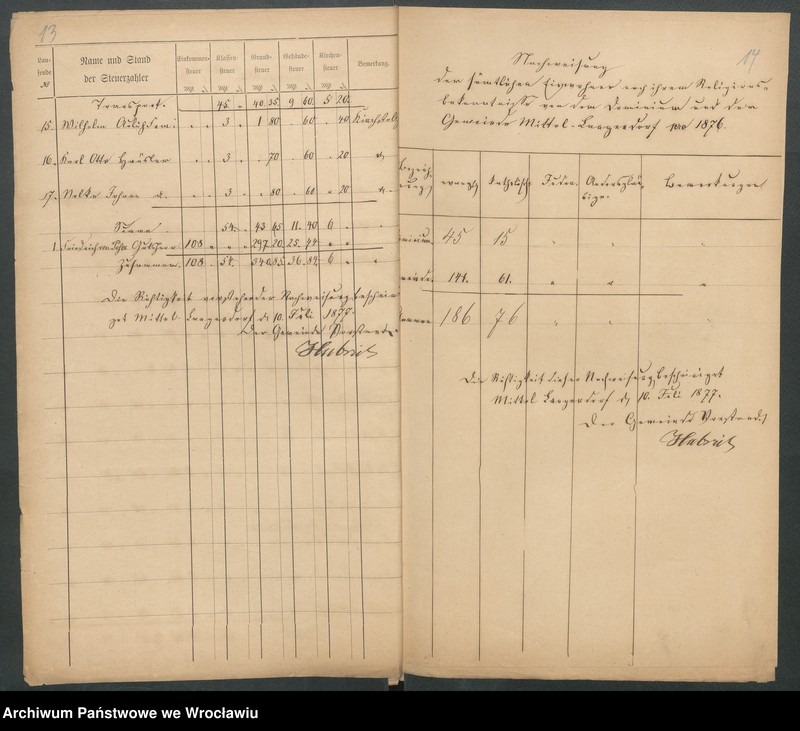 13
Laufende №
Name und Stand der Steuerzahler
Einkommensteuer
Klassensteuer
Grundsteuer
Gebäudesteuer
Kirchensteuer
Bemerkung.
Transport. 45 " 40 35 9 60 5 20
15. Wilhelm 3 " 1 80 " 60 " 40
16. Karl Otto Häusler 3 " " 70 " 60 " 20
17. 3 " " 80 " 60 " 20
Summa 54 " 43 65 11 40 6 "
1. Friedrich 108 " " " 297 20 25 44 " "
Zusammen 108 " 54 " 340 85 36 84 6 "
Die Richtigkeit vorstehender Nachweisung beschei
get Mittel Langendorf d. 10. Juli 1877.
Der Gemeinde Vorstand
Hubrich
14
Nachweisung
der sämtlichen Einwohner nach ihrem Religions-
bekenntniß von dem Dominium und der
Gemeinde Mittel-Langendorf pro 1876.
evangl. katholisch Juden Andersgläubige Bemerkungen
minium 45 15 " " "
meinde 141. 61. " " "
sammen 186 76 " " "
Die Richtigkeit dieser Nachweisung bescheiniget
Mittel Langendorf d. 10. Juli 1877.
Der Gemeinde Vorstand
Hubrich
Archiwum Państwowe we Wrocławiu